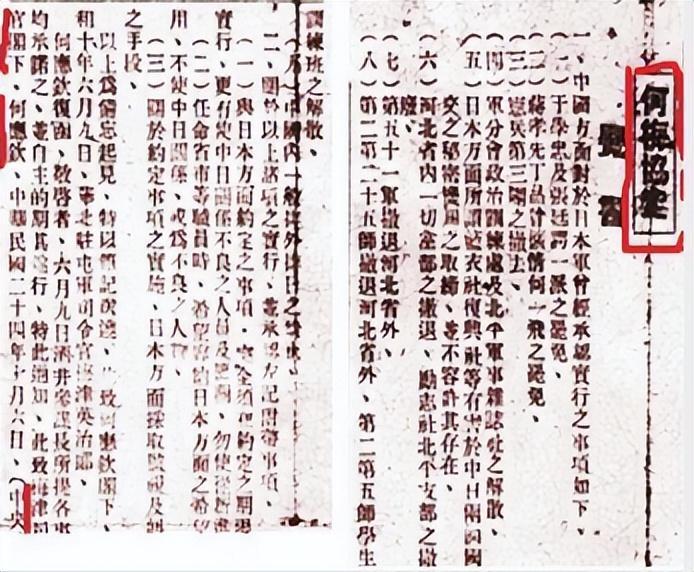 何梅協定
覺書
一、中國方面對於日本軍曾經承認實行之事項如下、
(一)于學忠及張廷諤一派之罷免、
(二)蔣孝先丁昌曾擴情何一飛之罷免、
(三)憲兵第三團之撤去、
(四)軍分會政治訓練處及北平軍事雜誌社之解散、
(五)日本方面所謂藍衣社復興社等有害於中日兩國國
交之秘密機關之取締、並不容許其存在、
(六)河北省內一切黨部之撤退、勵志社北平支部之撤
廢、
(七)第五十一軍撤退河北省外、
(八)第二第二十五師撤退河北省外、第二第五師學生
訓練班之解散、
(九)中國內一般排外排日之
二、關於以上諸項之實行、並承認左記附帶事項、
(一)與日本方面約定之事項、完全須在約定之期限
實行、更有使中日關係不良之人員及機關、勿使
(二)任命省市等職員時、希望容納日本方面之希望
用、不使中日關係、或為不良之人物、
(三)關於約定事項之實施、日本方面採取監視及糾
之手段、
以上為備忘起見、特以筆記送達、此致何應欽閣下、
和十年六月九日、華北駐屯軍司令官梅津美治郎、
何應欽復函、敬啓者、六月九日酒井參謀長所提各事
均承諾之、並自主的期其遂行、特此通知、此致梅津司
官閣下、何應欽、中華民國二十四年 月六日、(中央